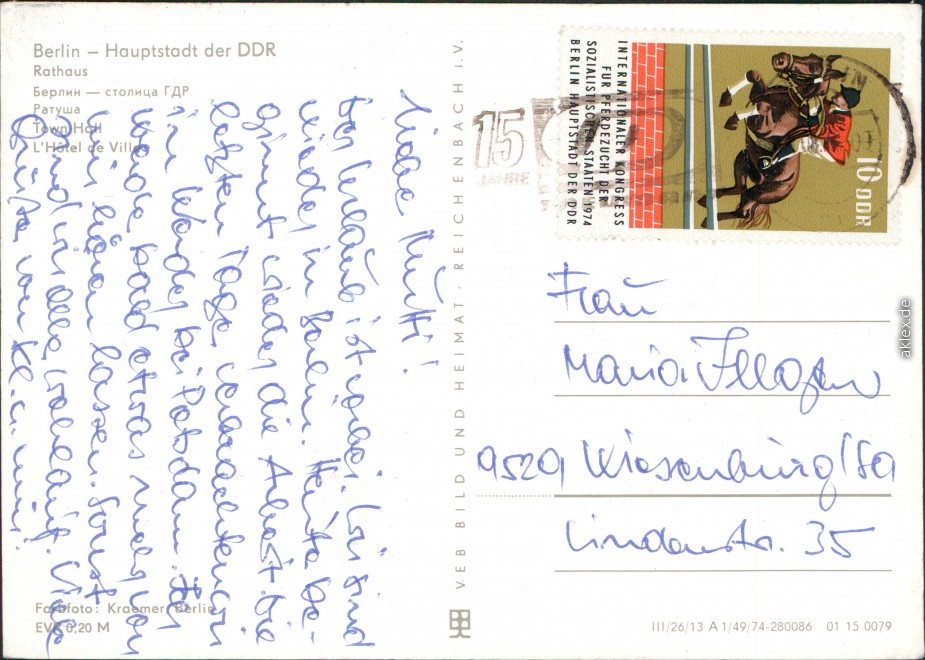 Berlin – Hauptstadt der DDR
Rathaus
Берлин — столица ГДР
Ратуша
Town Hall
L'Hôtel de Ville
Liebe Mutti!
Der Urlaub ist vorbei. Wir sind
wieder in Berlin. Heute be-
ginnt wieder die Arbeit. Die
letzten Tage verbrachten wir
in Werder bei Potsdam.
Werde bald etwas mehr von
mir hören lassen. Sonst
sind wir alle wohlauf. Viele
Grüße von
Farbfoto: Kraemer, Berlin
EVP 0,20 M
VEB BILD UND HEIMAT · REICHENBACH I. V.
15
JAHRE
INTERNATIONALER KONGRESS
FÜR PFERDEZUCHT DER
SOZIALISTISCHEN STAATEN 1974
BERLIN HAUPTSTADT DER DDR
10 DDR
Frau
Maria
9529 Wiesenburg/Sa
Lindenstr. 35
III/26/13 A 1/49/74-280086 01 15 0079
aklex.de